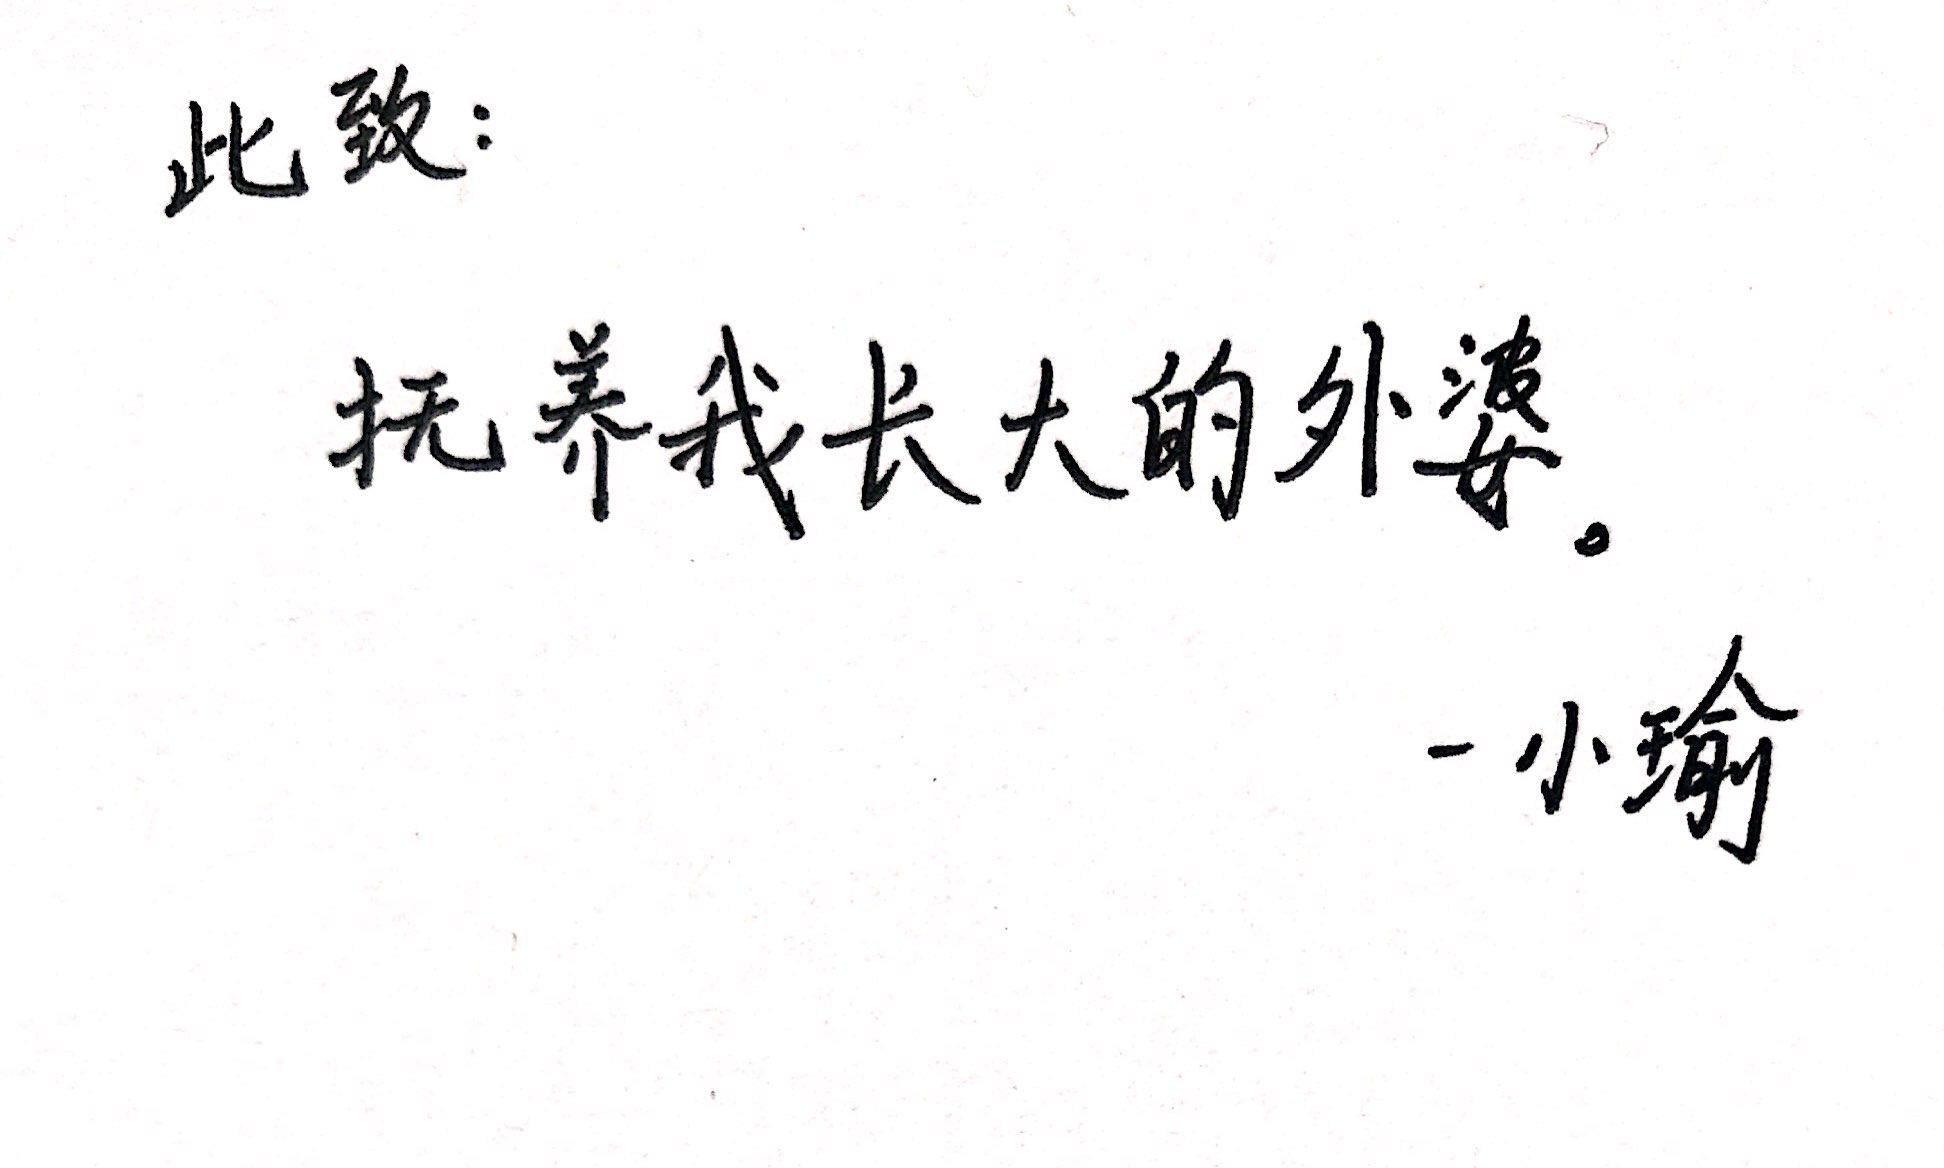 此致:
抚养我长大的外婆。
-小瑜